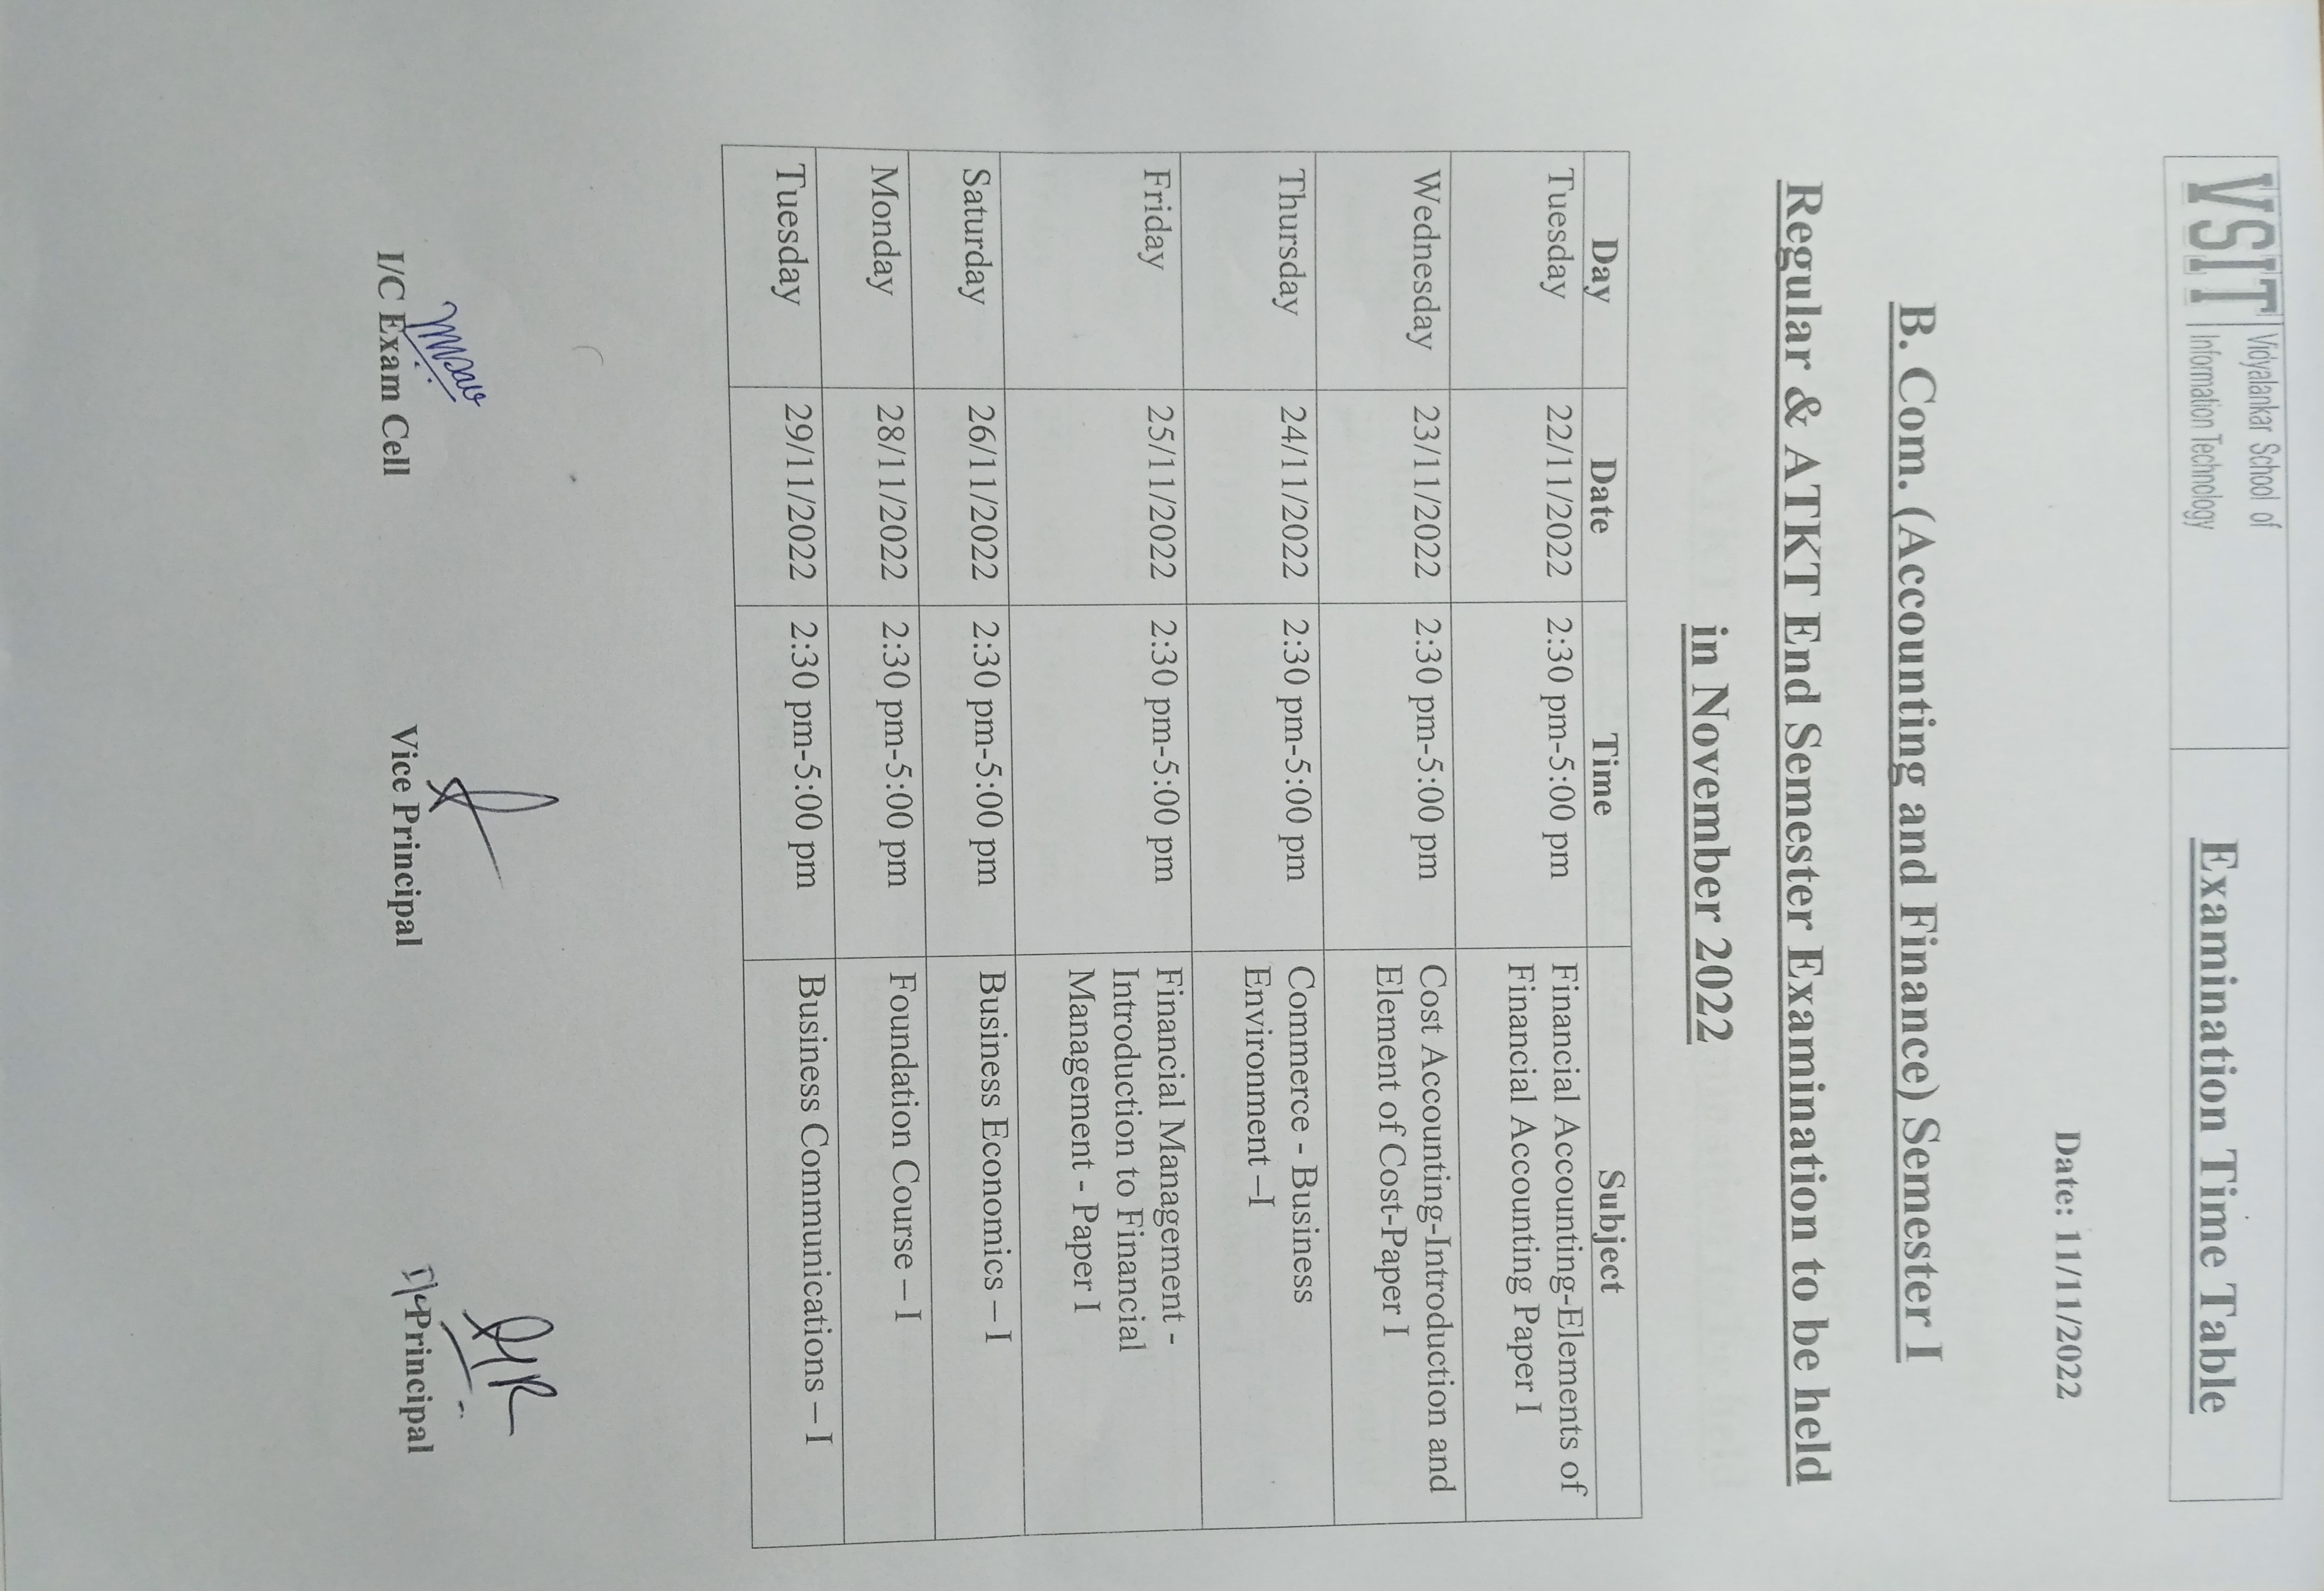 VSIT Vidyalankar School of
Information Technology
Examination Time Table
Date: 11/11/2022
B. Com. (Accounting and Finance) Semester I
Regular & ATKT End Semester Examination to be held
in November 2022
Day Date Time Subject
Tuesday 22/11/2022 2:30 pm-5:00 pm Financial Accounting-Elements of
Financial Accounting Paper I
Wednesday 23/11/2022 2:30 pm-5:00 pm Cost Accounting-Introduction and
Element of Cost-Paper I
Thursday 24/11/2022 2:30 pm-5:00 pm Commerce - Business
Environment –I
Friday 25/11/2022 2:30 pm-5:00 pm Financial Management -
Introduction to Financial
Management - Paper I
Saturday 26/11/2022 2:30 pm-5:00 pm Business Economics – I
Monday 28/11/2022 2:30 pm-5:00 pm Foundation Course – I
Tuesday 29/11/2022 2:30 pm-5:00 pm Business Communications – I
I/C Exam Cell Vice Principal Principal